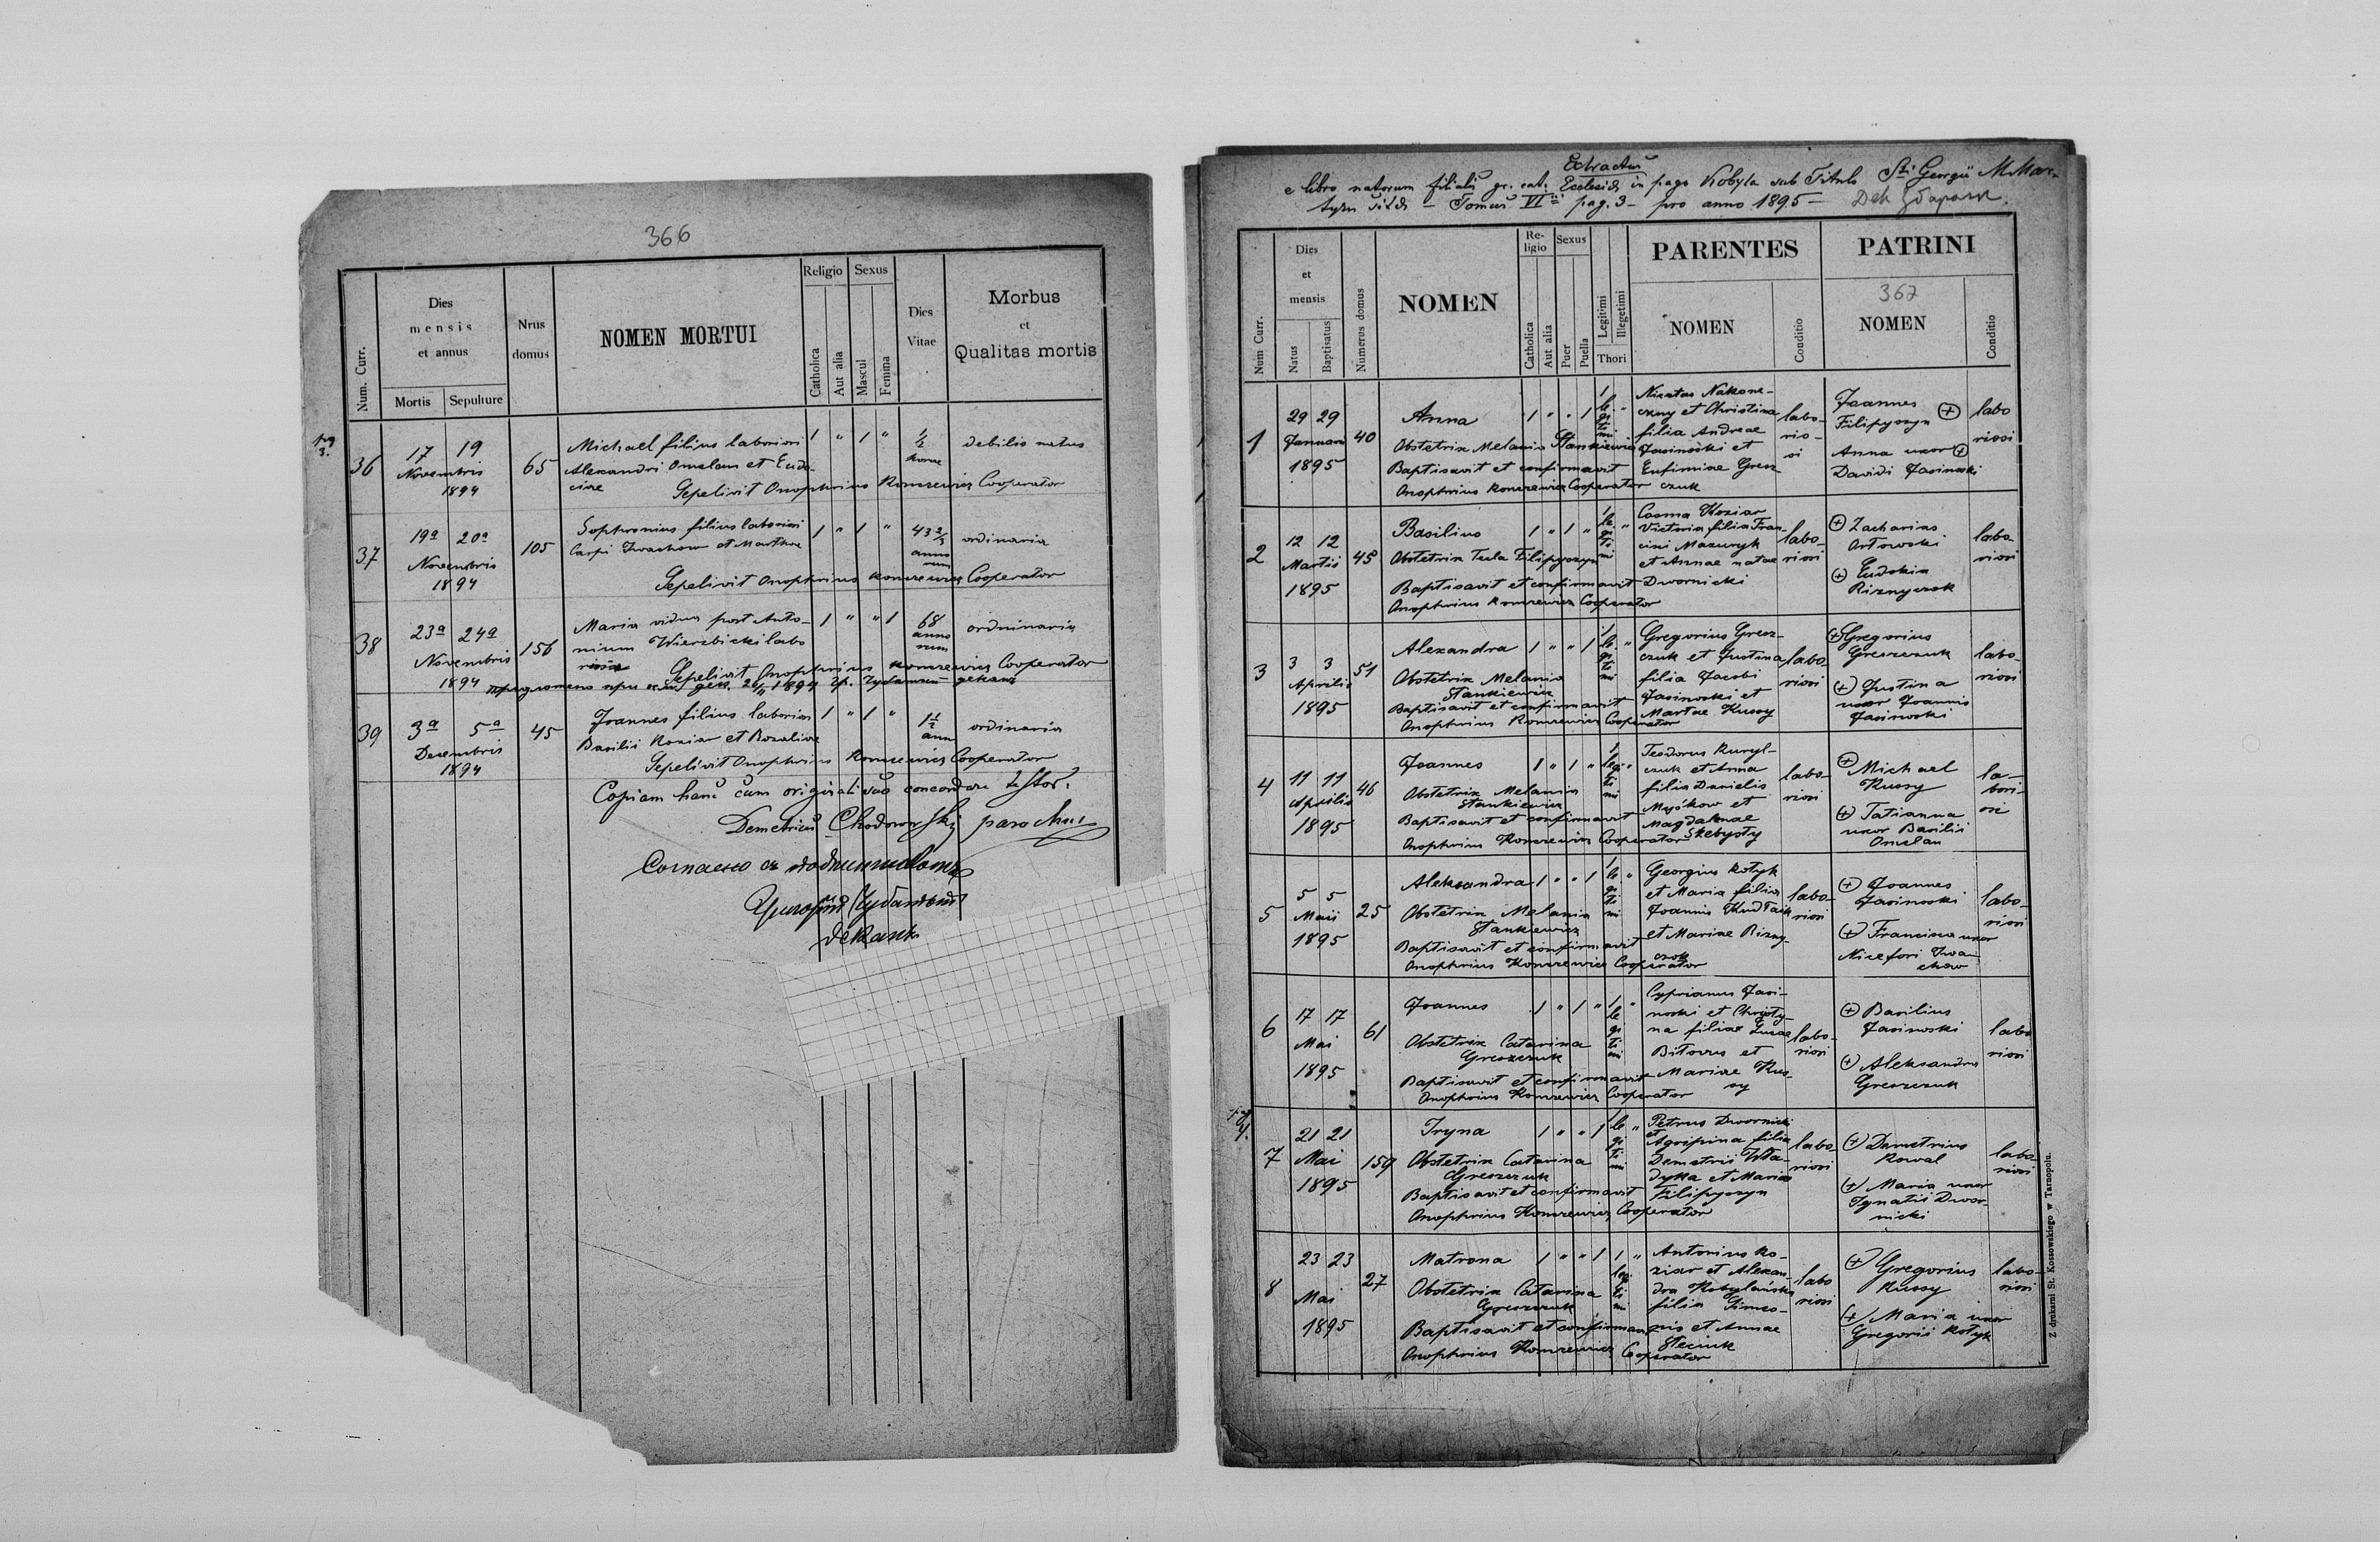 366
Num. Curr.
Dies
mensis
et annus
Mortis
Sepulture
Nrus
domus
NOMEN MORTUI
Religio
Catholica
Aut alia
Sexus
Mascul
Femina
Dies
Vitae
Morbus
et
Qualitas mortis
36
17 19
Novembris
1894
65
Michael filius laboriosi
Alexandri Omelan et Eudo-
ciae
Sepelivit Onophrius Cooperator
1 " 1 "
1/2
horae
debilis natus
37
19a 20a
Novembris
1894
105
Sophronius filius laboriosi
Carpi Iwachow et Marthae
Sepelivit Onophrius Cooperator
1 " 1 "
43 2/3
anno
rum
ordinaria
38
23a 24a
Novembris
1894
156
Maria vidua post Anto-
nium Wierzbicki labo
Sepelivit Onophrius Cooperator
1 " " 1
68
anno
rum
ordninaria
39
3a 5a
Decembris
1894
45
Joannes filius laboriosi
Basilii Koziar et Rozaliae
Sepelivit Onophrius Cooperator
1 " 1 "
1 1/2
ann
ordinaria
Copiam hanc cum originali suo concordare testor.
Demetrius Chodorowskij parochus
Extractus
e libro natorum filialis gr. cat. Ecclesiæ in pago Kobyla sub Titulo Sti Georgii M. Mar-
- Tomus VI pag. 3 - pro anno 1895 -
367
Num Curr.
Dies
et
mensis
Natus
Baptisatus
Numerus domus
NOMEN
Religio
Catholica
Aut alia
Sexus
Puer
Puella
Legitimi
Illegetimi
Thori
PARENTES
NOMEN
Conditio
PATRINI
NOMEN
Conditio
1
29 29
Januarii
1895
40
Anna
Obstetrix Melania Stankiewicz
Baptisavit et confirmavit
Onophrius Cooperator
Nicetas Nakone-
czny et Christina
filia Andreae
Jasinski et
Eufimiae Gresz
czuk
labo-
rio-
si
Joannes
Filipyszyn
Anna uxor
Davidi Jasinski
labo
riosi
2
12 12
Martii
1895
45
Basilius
Obstetrix Tecla Filipyszyn
Baptisavit et confirmavit
Onophrius Cooperator
Cosma Koziar
Victoria filia Fran-
cisci Mazuryk
et Annae natae
Dwornicki
labo-
riosi
Zacharias
Orłowski
Eudokia
Riznyczok
labo-
riosi
3
3 3
Aprilis
1895
51
Alexandra
Obstetrix Melania
Stankiewicz
Baptisavit et confirmavit
Onophrius Cooperator
Gregorius Gresz-
czuk et Justina
filia Jacobi
Jasinski et
Martae Kussy
labo
riosi
Gregorius
Greszczuk
Justina
uxor Joannis
Jasinski
labo-
riosi
4
11 11
Aprilis
1895
46
Joannes
Obstetrix Melania
Stankiewicz
Baptisavit et confirmavit
Onophrius Cooperator
Teodorus Kuryl-
czuk et Anna
filia Danielis
Myśkow et
Magdalenae
labo-
riosi
Michael
Kussy
Tatianna
uxor Basilii
Omelan
la-
bori-
osi
5
5 5
Maii
1895
25
Aleksandra
Obstetrix Melania
Stankiewicz
Baptisavit et confirmavit
Onophrius Cooperator
Georgius Kotyk
et Maria filia
Joannis
et Mariae Rizny-
czok
labo-
riosi
Joannes
Jasinski
Francisca uxor
Nicefori Iwa
chow
labo-
riosi
6
17 17
Mai
1895
61
Joannes
Obstetrix Catarina
Greszczuk
Baptisavit et confirmavit
Onophrius Cooperator
Cyprianus Jasi-
nski et Christy-
na filiae Lucae
Bitowus et
Mariae Kus-
sy
labo-
riosi
Basilius
Jasinski
Aleksandra
Greszczuk
labo
riosi
7
21 21
Mai
1895
159
Iryna
Obstetrix Catarina
Greszczuk
Baptisavit et confirmavit
Onophrius Cooperator
Petrus Dwornicki
et
Agripina filia
Demetrii Wła-
dyka et Maria
Filipyszyn
labo-
riosi
Demetrius
Kowal
Maria uxor
Ignatii Dwor-
nicki
labo-
riosi
8
23 23
Mai
1895
27
Matrona
Obstetrix Catarina
Greszczuk
Baptisavit et confirmavit
Onophrius Cooperator
Antonius Ko-
ziar et Alexan-
dra Kobylańska
filia Simeo-
nis et Annae
Steciuk
labo
riosi
Gregorius
Kussy
Maria uxor
Gregorii Kotyk
labo-
riosi
Z drukarni St. Kossowskiego w Tarnopolu.